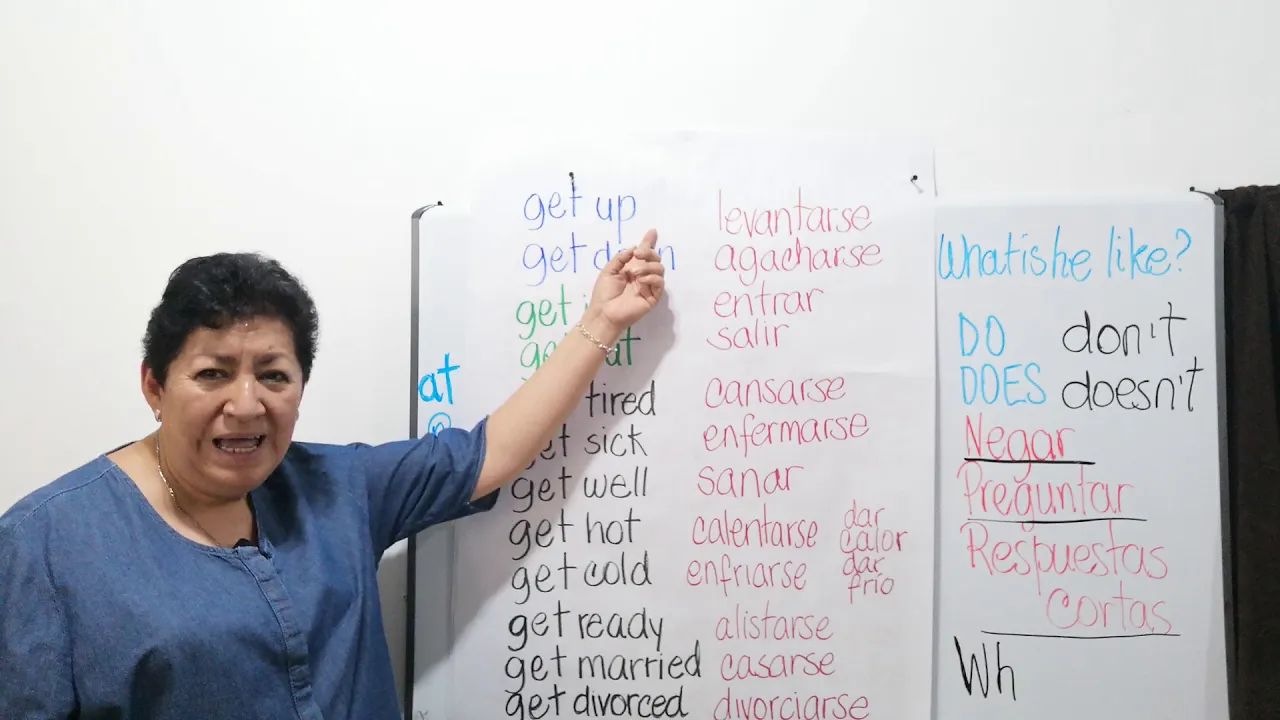 get up levantarse
get agacharse
get entrar
salir
tired cansarse
get sick enfermarse
get well sanar
get hot calentarse dar calor
get cold enfriarse dar frio
get ready alistarse
get married casarse
get divorced divorciarse
at
What is he like?
DO don't
DOES doesn't
Negar
Preguntar
Respuestas
Cortas
Wh